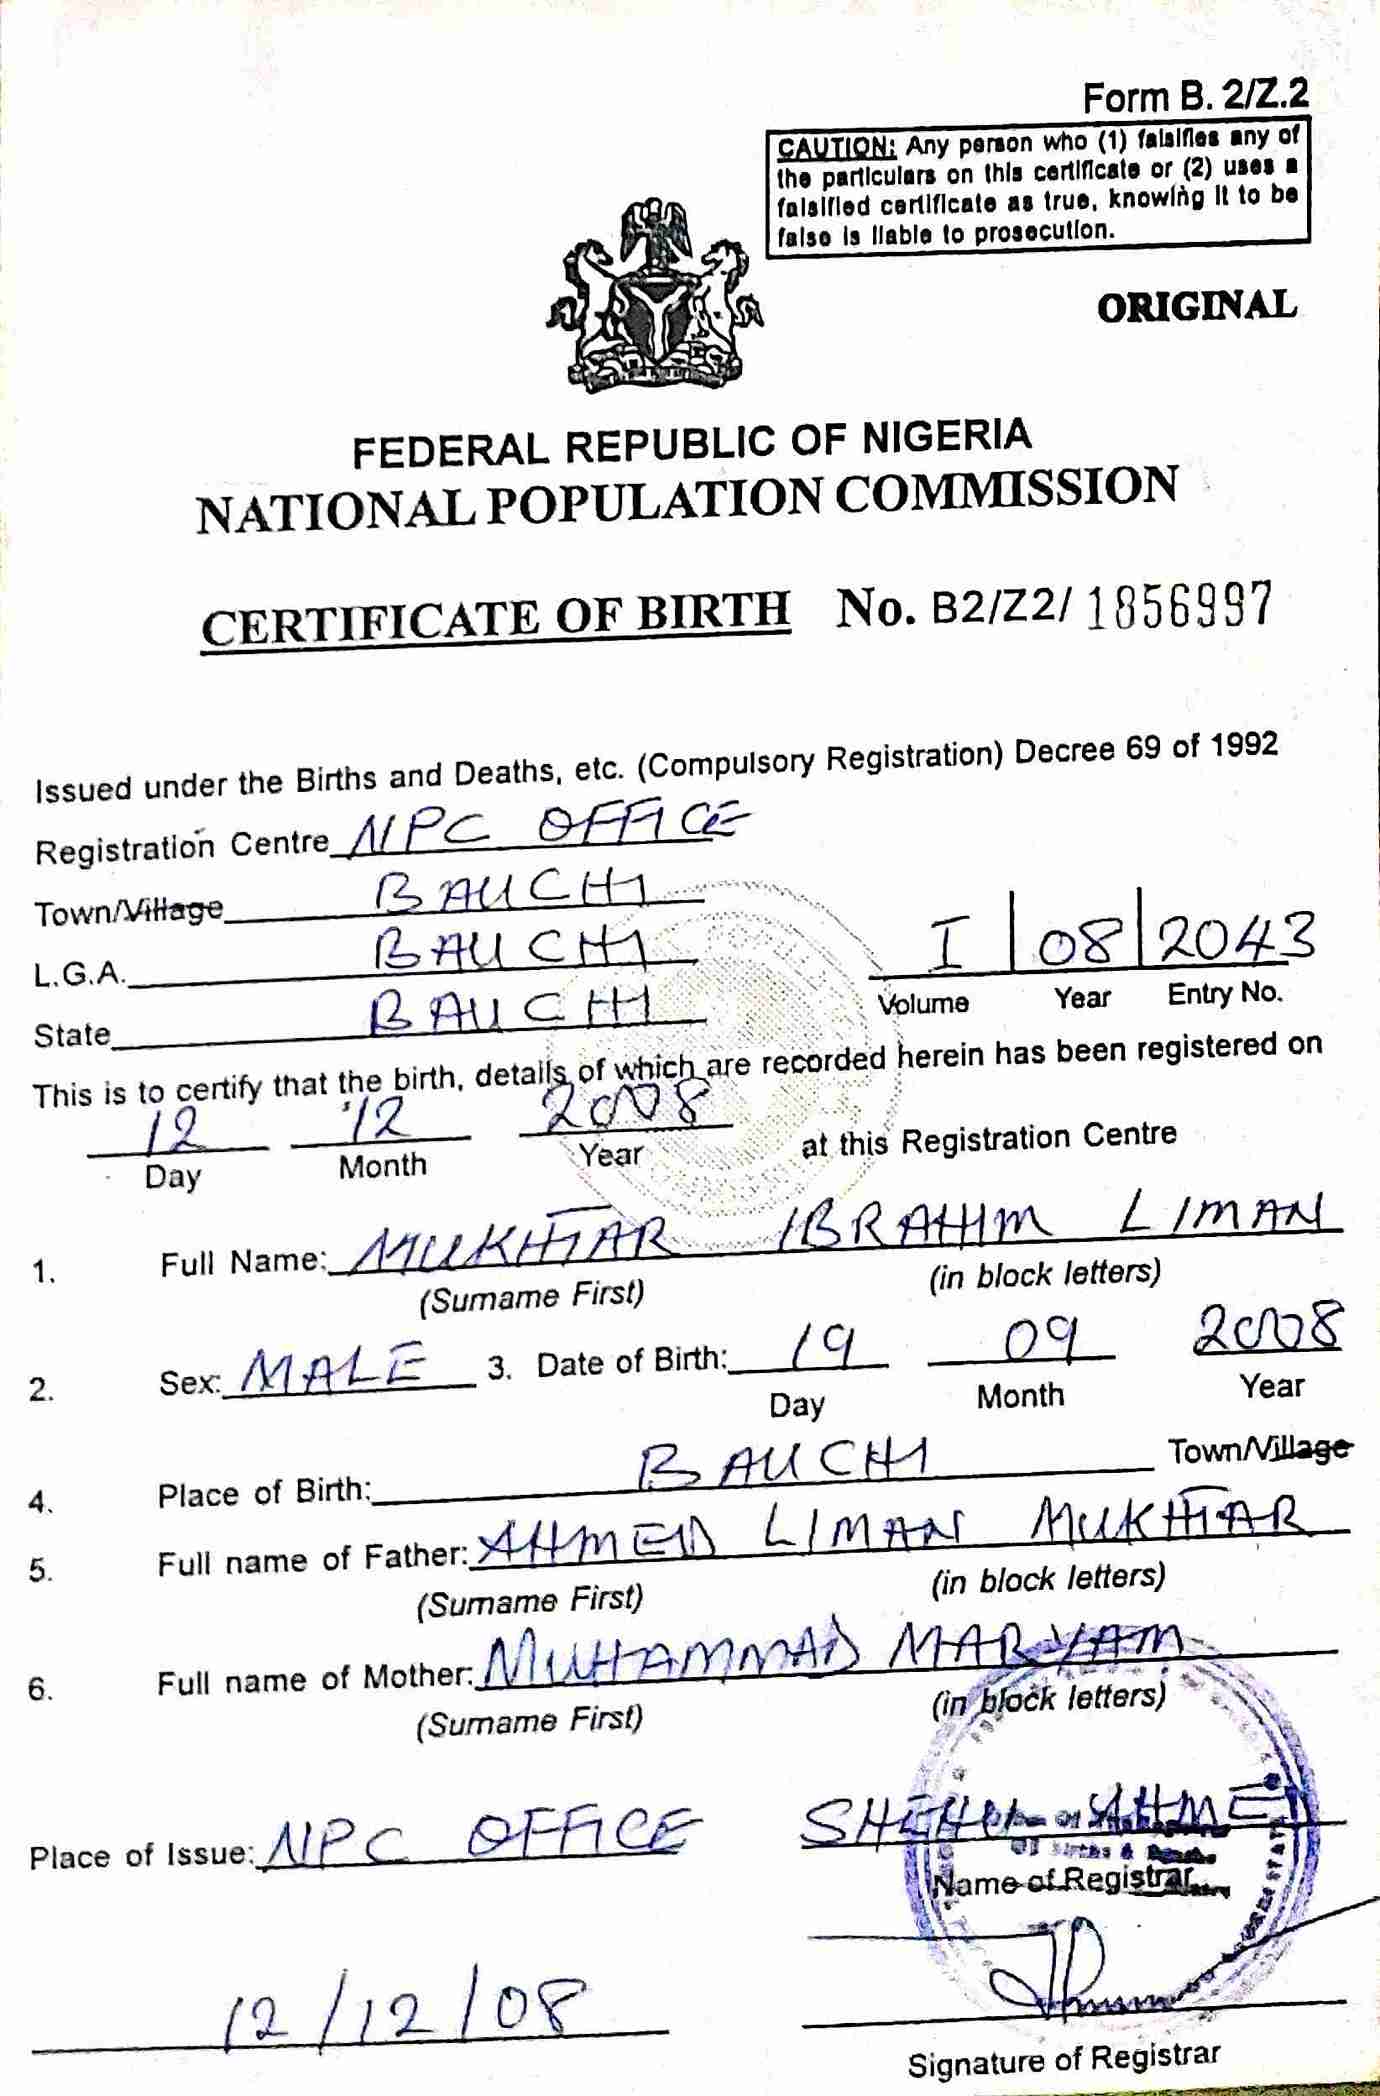 Form B. 2/Z.2
CAUTION: Any person who (1) falsifies any of
the particulars on this certificate or (2) uses a
falsified certificate as true, knowing it to be
false is liable to prosecution.
ORIGINAL
FEDERAL REPUBLIC OF NIGERIA
NATIONAL POPULATION COMMISSION
CERTIFICATE OF BIRTH No. B2/Z2/ 1856997
Issued under the Births and Deaths, etc. (Compulsory Registration) Decree 69 of 1992
Registration Centre NPC OFFICE
Town/Village BAUCHI
L.G.A. BAUCHI I 08 2043
State BAUCHI Volume Year Entry No.
This is to certify that the birth, details of which are recorded herein has been registered on
12 12 2008
Day Month Year at this Registration Centre
1. Full Name: MUKHTAR IBRAHIM LIMAN
(Surname First) (in block letters)
2. Sex: MALE 3. Date of Birth: 19 09 2008
Day Month Year
4. Place of Birth: BAUCHI Town/Village
5. Full name of Father: AHMED LIMAN MUKHTAR
(Surname First) (in block letters)
6. Full name of Mother: MUHAMMAD MARYAM
(Surname First) (in block letters)
Place of Issue: NPC OFFICE SHEHU AHMED
Name of Registrar
12/12/08
Signature of Registrar